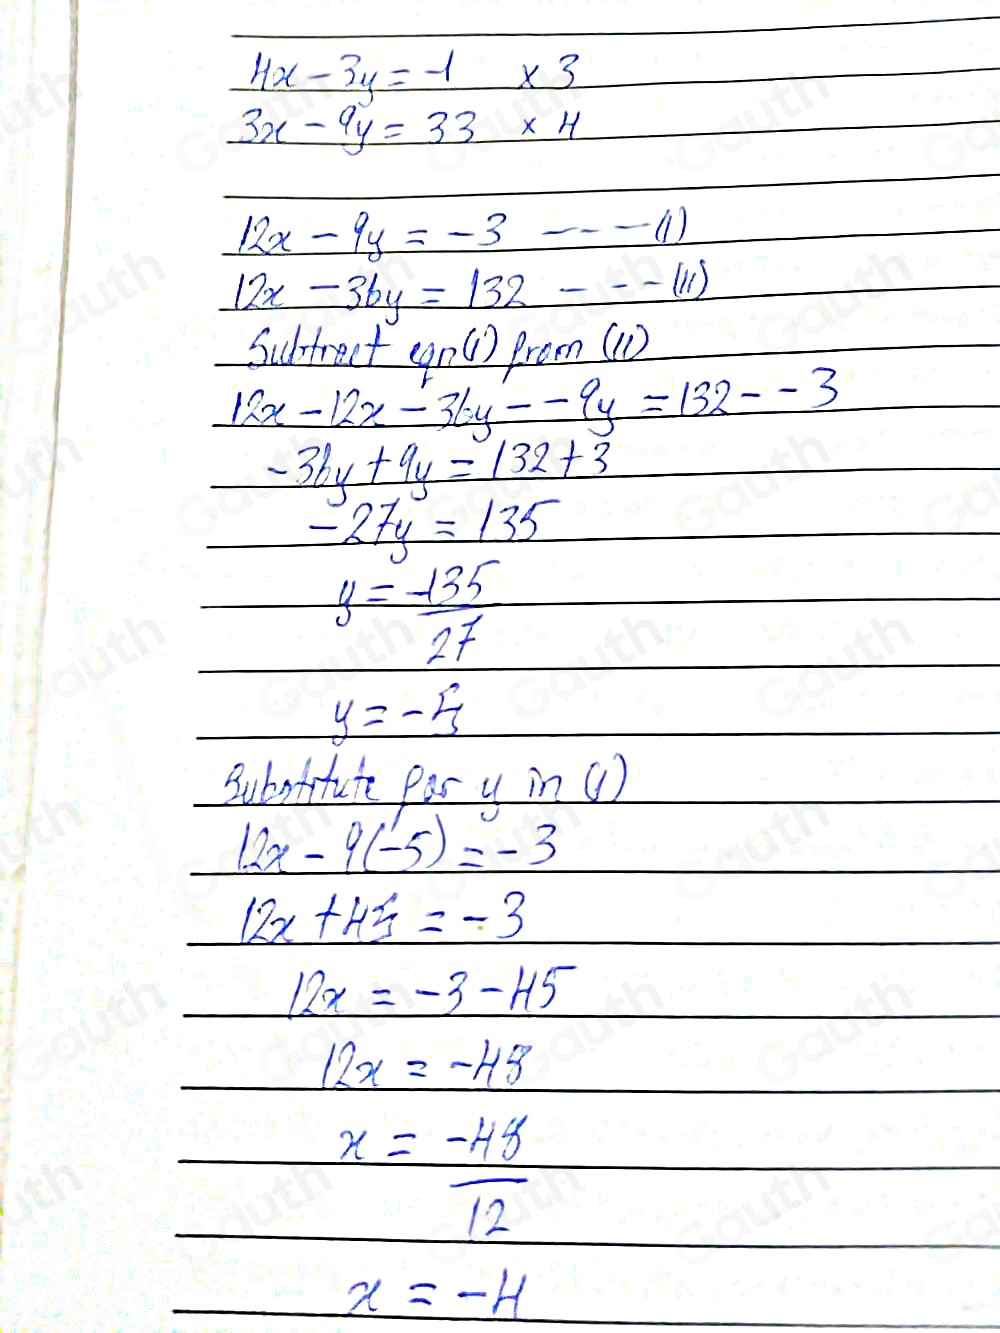 4x - 3y = -1 × 3
3x - 9y = 33 × 4
12x - 9y = -3 ----(I)
12x - 36y = 132 ---(II)
Subtract eqn(I) from (II)
12x - 12x - 36y - - 9y = 132 - - 3
-36y + 9y = 132 + 3
-27y = 135
y = -135
27
y = -5
Substitute for y in (I)
12x - 9(-5) = -3
12x + 45 = -3
12x = -3 - 45
12x = -48
x = -48
12
x = -4